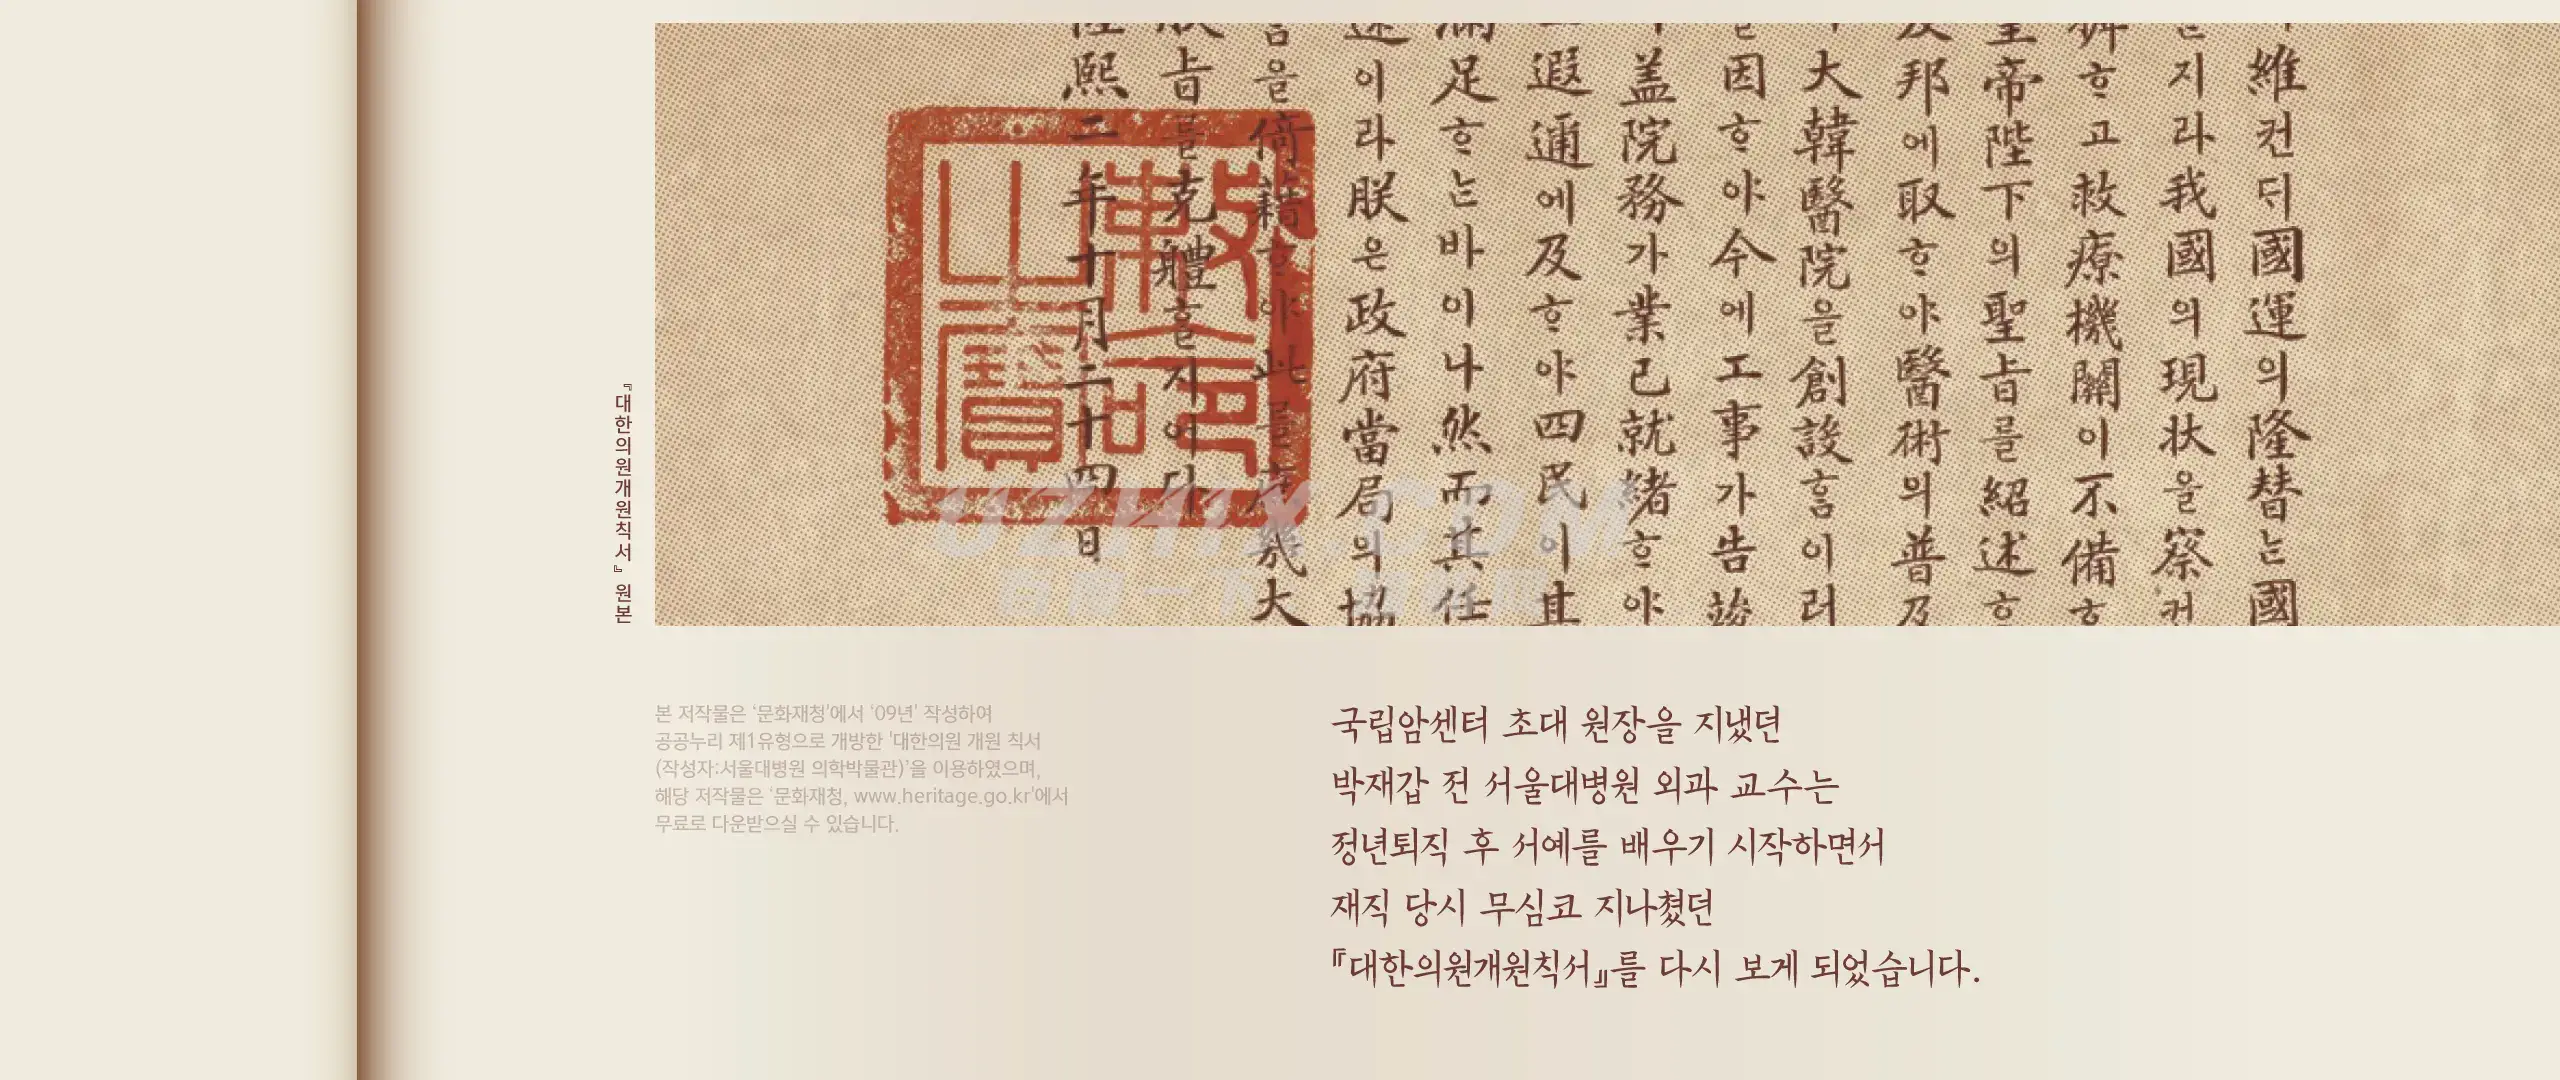 維컨ᄃᆡ國運의隆替는國
지라我國의現狀을察커
ᄒᆞ고救療機關이不備ᄒᆞ
皇帝陛下의聖旨를紹述ᄒᆞ
邦에取ᄒᆞ야醫術의普及
大韓醫院을創設흠이러
因ᄒᆞ야今에工事가告竣
盖院務가業已就緖ᄒᆞ야
遐邇에及ᄒᆞ야四民이其
滿足ᄒᆞᄂᆞᆫ바이나然而其任
이라朕은政府當局의協
을倚藉ᄒᆞ야此를庶幾大
旨를克體ᄒᆞᆯ지어다
隆熙二年十月二十四日
敕命之寶
『대한의원개원칙서』 원본
본 저작물은 '문화재청'에서 '09년' 작성하여
공공누리 제1유형으로 개방한 '대한의원 개원 칙서
(작성자:서울대병원 의학박물관)'을 이용하였으며,
해당 저작물은 '문화재청, www.heritage.go.kr'에서
무료로 다운받으실 수 있습니다.
국립암센터 초대 원장을 지냈던
박재갑 전 서울대병원 외과 교수는
정년퇴직 후 서예를 배우기 시작하면서
재직 당시 무심코 지나쳤던
『대한의원개원칙서』를 다시 보게 되었습니다.